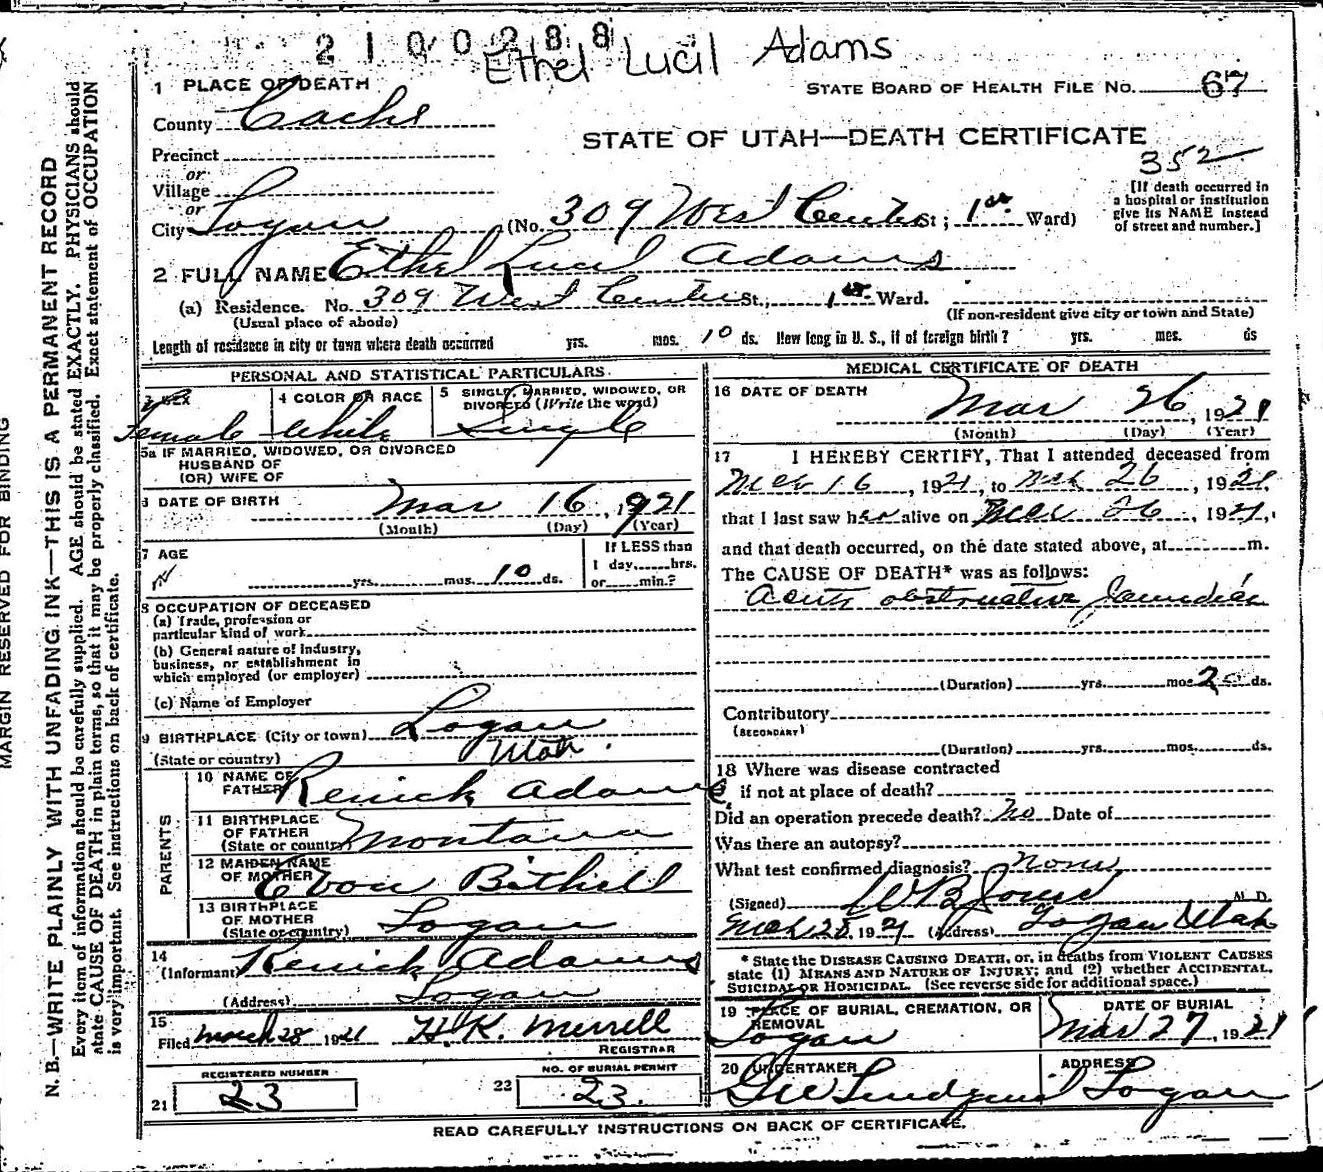 2100288
Ethel Lucil Adams
1 PLACE OF DEATH
STATE BOARD OF HEALTH FILE No. 67
County Cache
STATE OF UTAH—DEATH CERTIFICATE
Precinct
352
or
Village
[If death occurred in
a hospital or institution
give its NAME instead
of street and number.]
or
City Logan (No. 309 West Center St; 1st Ward)
2 FULL NAME Ethel Lucil Adams
(a) Residence. No. 309 West Center St., 1st Ward.
(Usual place of abode)
(If non-resident give city or town and State)
Length of residence in city or town where death occurred yrs. mos. 10 ds. How long in U. S., if of foreign birth? yrs. mos. ds
PERSONAL AND STATISTICAL PARTICULARS.
3 SEX
Female
4 COLOR OR RACE
White
5 SINGLE, MARRIED, WIDOWED, OR
DIVORCED (Write the word)
Single
5a IF MARRIED, WIDOWED, OR DIVORCED
HUSBAND OF
(OR) WIFE OF
6 DATE OF BIRTH Mar 16, 1921
(Month) (Day) (Year)
7 AGE
yrs. mos. 10 ds.
If LESS than
1 day, hrs.
or min.?
8 OCCUPATION OF DECEASED
(a) Trade, profession or
particular kind of work
(b) General nature of industry,
business, or establishment in
which employed (or employer)
(c) Name of Employer
9 BIRTHPLACE (City or town) Logan
(State or country) Utah.
PARENTS
10 NAME OF
FATHER Renick Adams
11 BIRTHPLACE
OF FATHER
(State or country) Montana
12 MAIDEN NAME
OF MOTHER Evon Bithell
13 BIRTHPLACE
OF MOTHER
(State or country) Logan
14
(Informant) Renick Adams
(Address) Logan
15
Filed March 28 1921 H. K. Merrell
REGISTRAR
REGISTERED NUMBER
21 23
NO. OF BURIAL PERMIT
22 23.
MEDICAL CERTIFICATE OF DEATH
16 DATE OF DEATH
Mar 26, 1921
(Month) (Day) (Year)
17 I HEREBY CERTIFY, That I attended deceased from
Mar 16, 1921, to Mch 26, 1921,
that I last saw her alive on Mar 26, 1921,
and that death occurred, on the date stated above, at m.
The CAUSE OF DEATH* was as follows:
Acute obstructive Jaundice
(Duration) yrs. mos. ds.
Contributory
(SECONDARY)
(Duration) yrs. mos. ds.
18 Where was disease contracted
if not at place of death?
Did an operation precede death? No Date of
Was there an autopsy?
What test confirmed diagnosis? None
(Signed) M. D.
Mch 28, 1921 (Address) Logan Utah
* State the DISEASE CAUSING DEATH, or, in deaths from VIOLENT CAUSES
state (1) MEANS AND NATURE OF INJURY; and (2) whether ACCIDENTAL,
SUICIDAL OR HOMICIDAL. (See reverse side for additional space.)
19 PLACE OF BURIAL, CREMATION, OR
REMOVAL
Logan
DATE OF BURIAL
Mar 27, 1921
20 UNDERTAKER
ADDRESS
Logan
READ CAREFULLY INSTRUCTIONS ON BACK OF CERTIFICATE.
MARGIN RESERVED FOR BINDING
N. B.—WRITE PLAINLY WITH UNFADING INK—THIS IS A PERMANENT RECORD
Every item of information should be carefully supplied. AGE should be stated EXACTLY. PHYSICIANS should
state CAUSE OF DEATH in plain terms, so that it may be properly classified. Exact statement of OCCUPATION
is very important. See instructions on back of certificate.